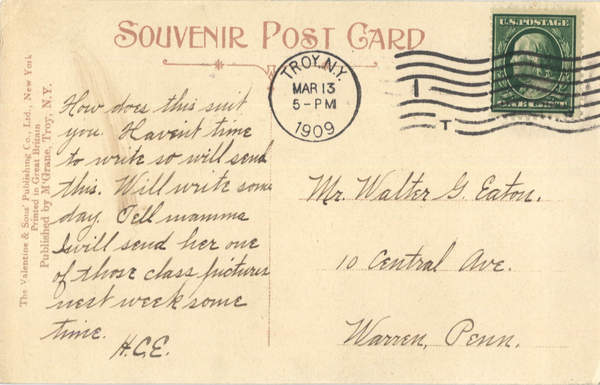 SOUVENIR POST CARD
TROY, N.Y.
MAR 13
5-PM
1909
1
T
U.S. POSTAGE
The Valentine & Sons' Publishing Co., Ltd., New York
Printed in Great Britain
Published by M'Grane, Troy, N.Y.
How does this suit
you. Havent time
to write so will send
this. Will write some
day. Tell mamma
I will send her one
of those class pictures
next week some
time.
H.C.E.
Mr. Walter G. Eaton.
10 Central Ave.
Warren, Penn.